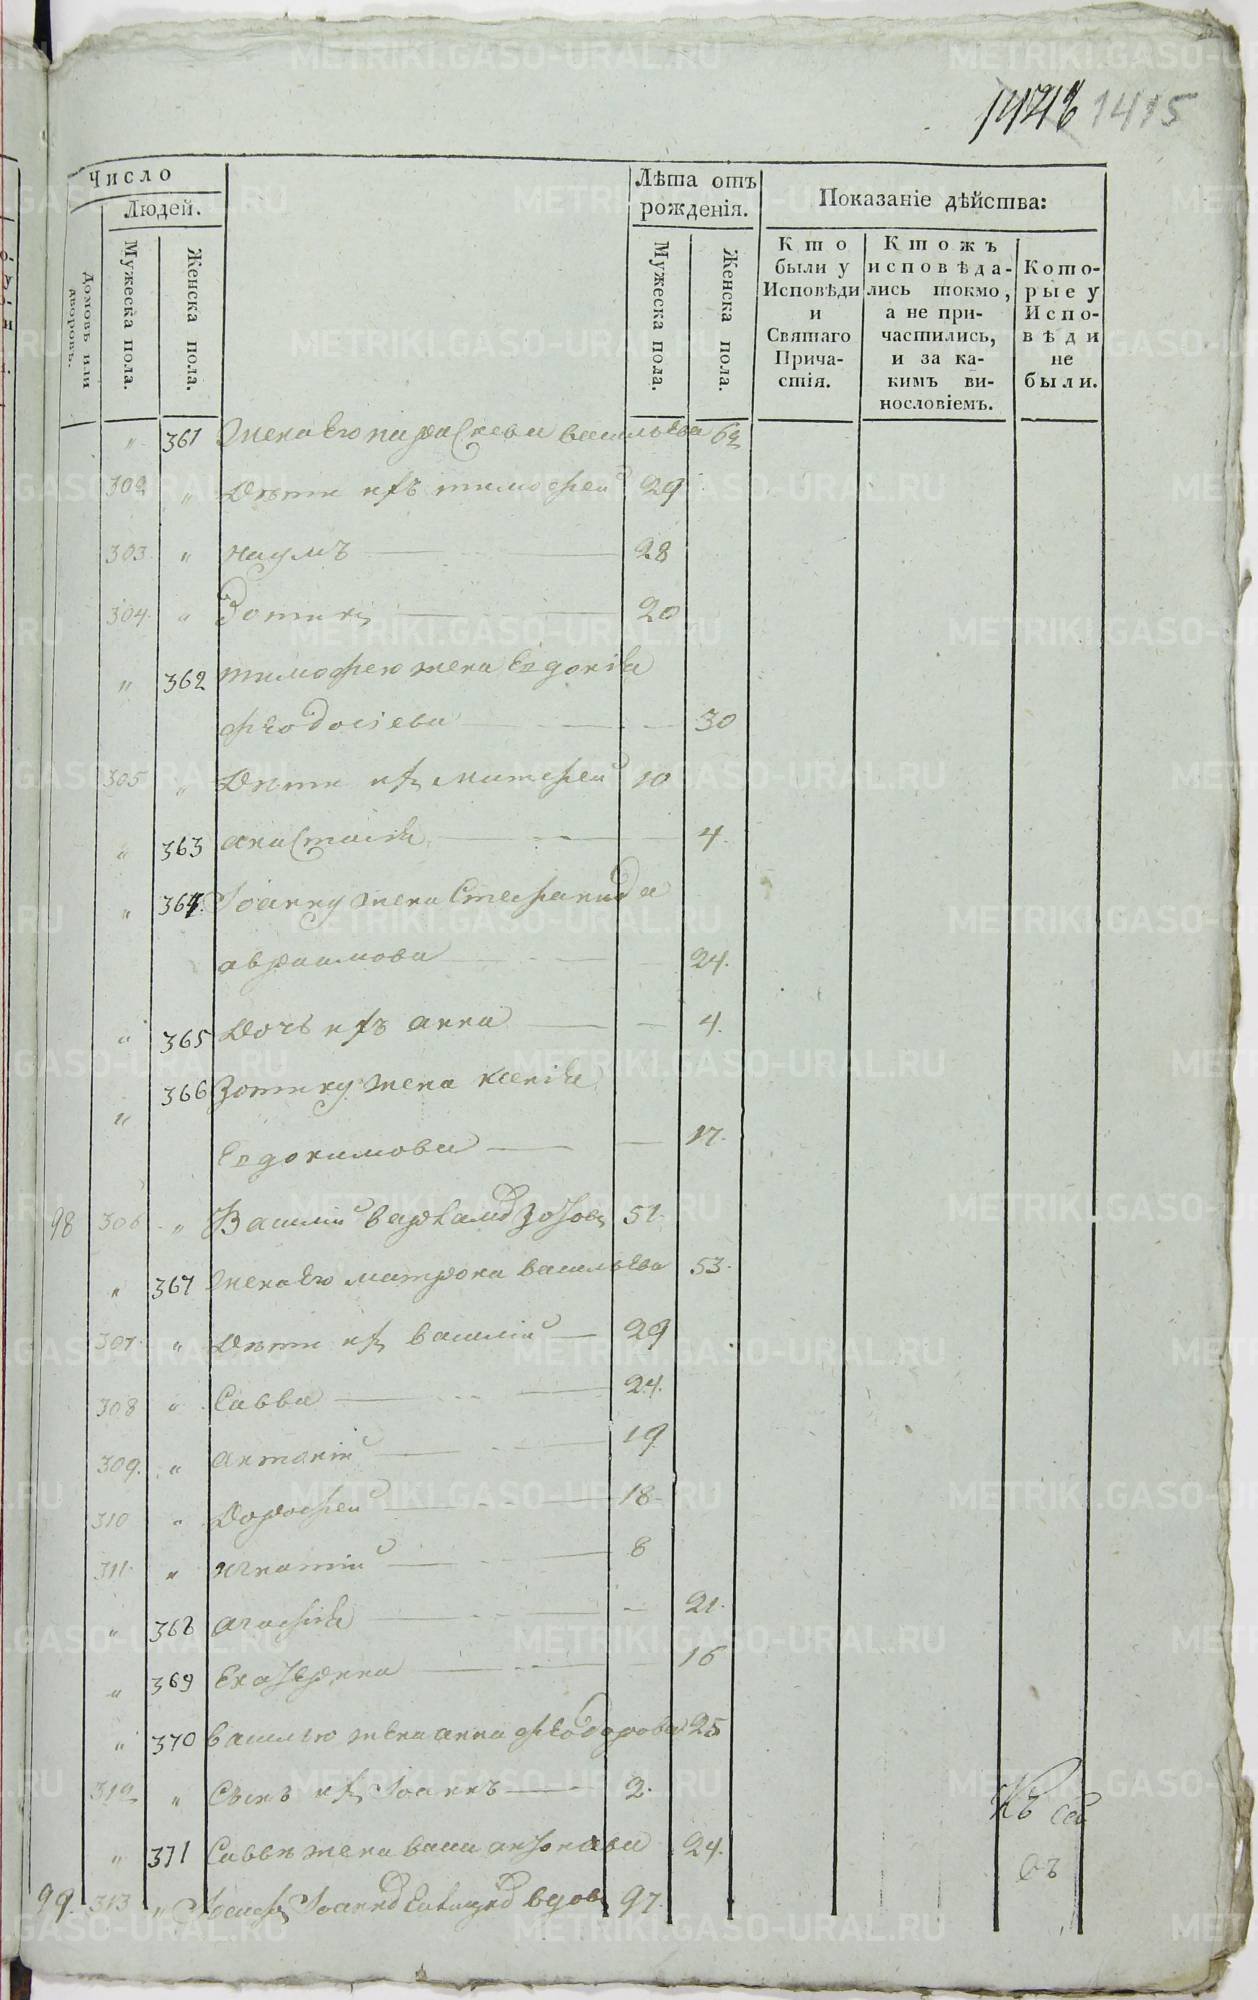 1415
Число
Людей.
Домовъ или дворовъ.
Мужеска пола.
Женска пола.
Лѣта отъ рожденія.
Мужеска пола.
Женска пола.
Показаніе дѣйства:
Кто были у Исповѣди и Святаго Прича-стія.
Ктожъ исповѣда-лись токмо, а не при-частились, и за ка-кимъ ви-нословіемъ.
Кото-рые у Испо-вѣди не были.
" 361 Жена Его параскева васильева 62
302 " Дѣти ихъ тимофей 29
303 " наумъ 28
304 " Зотикъ 20
" 362 тимофею жена Евдокія
феодосіева 30
305 " Дѣти ихъ матфей 10
" 363 анастасія 4
" 364 Іоанну жена Стефанида
авраамова 24.
" 365 Дочь ихъ анна 4.
" 366 Зотику жена ксенія
Евдокимова 17.
98 306 " Василій варлам 51.
" 367 Жена Его матрона васильева 53.
307 " Дѣти ихъ василій 29
308 " Савва 24.
309. " антоній 19
310 " Дорофей 18
311 " игнатій 8
" 368 агафія 21.
" 369 Екатерина 16
" 370 василью жена анна феодорова 25
312 " Сынъ ихъ Іоаннъ 2.
" 371 Саввѣ жена васа антонова 24.
99. 313 " Іосифъ Іоаннов вдовъ 97.
METRIKI.GASO-URAL.RU